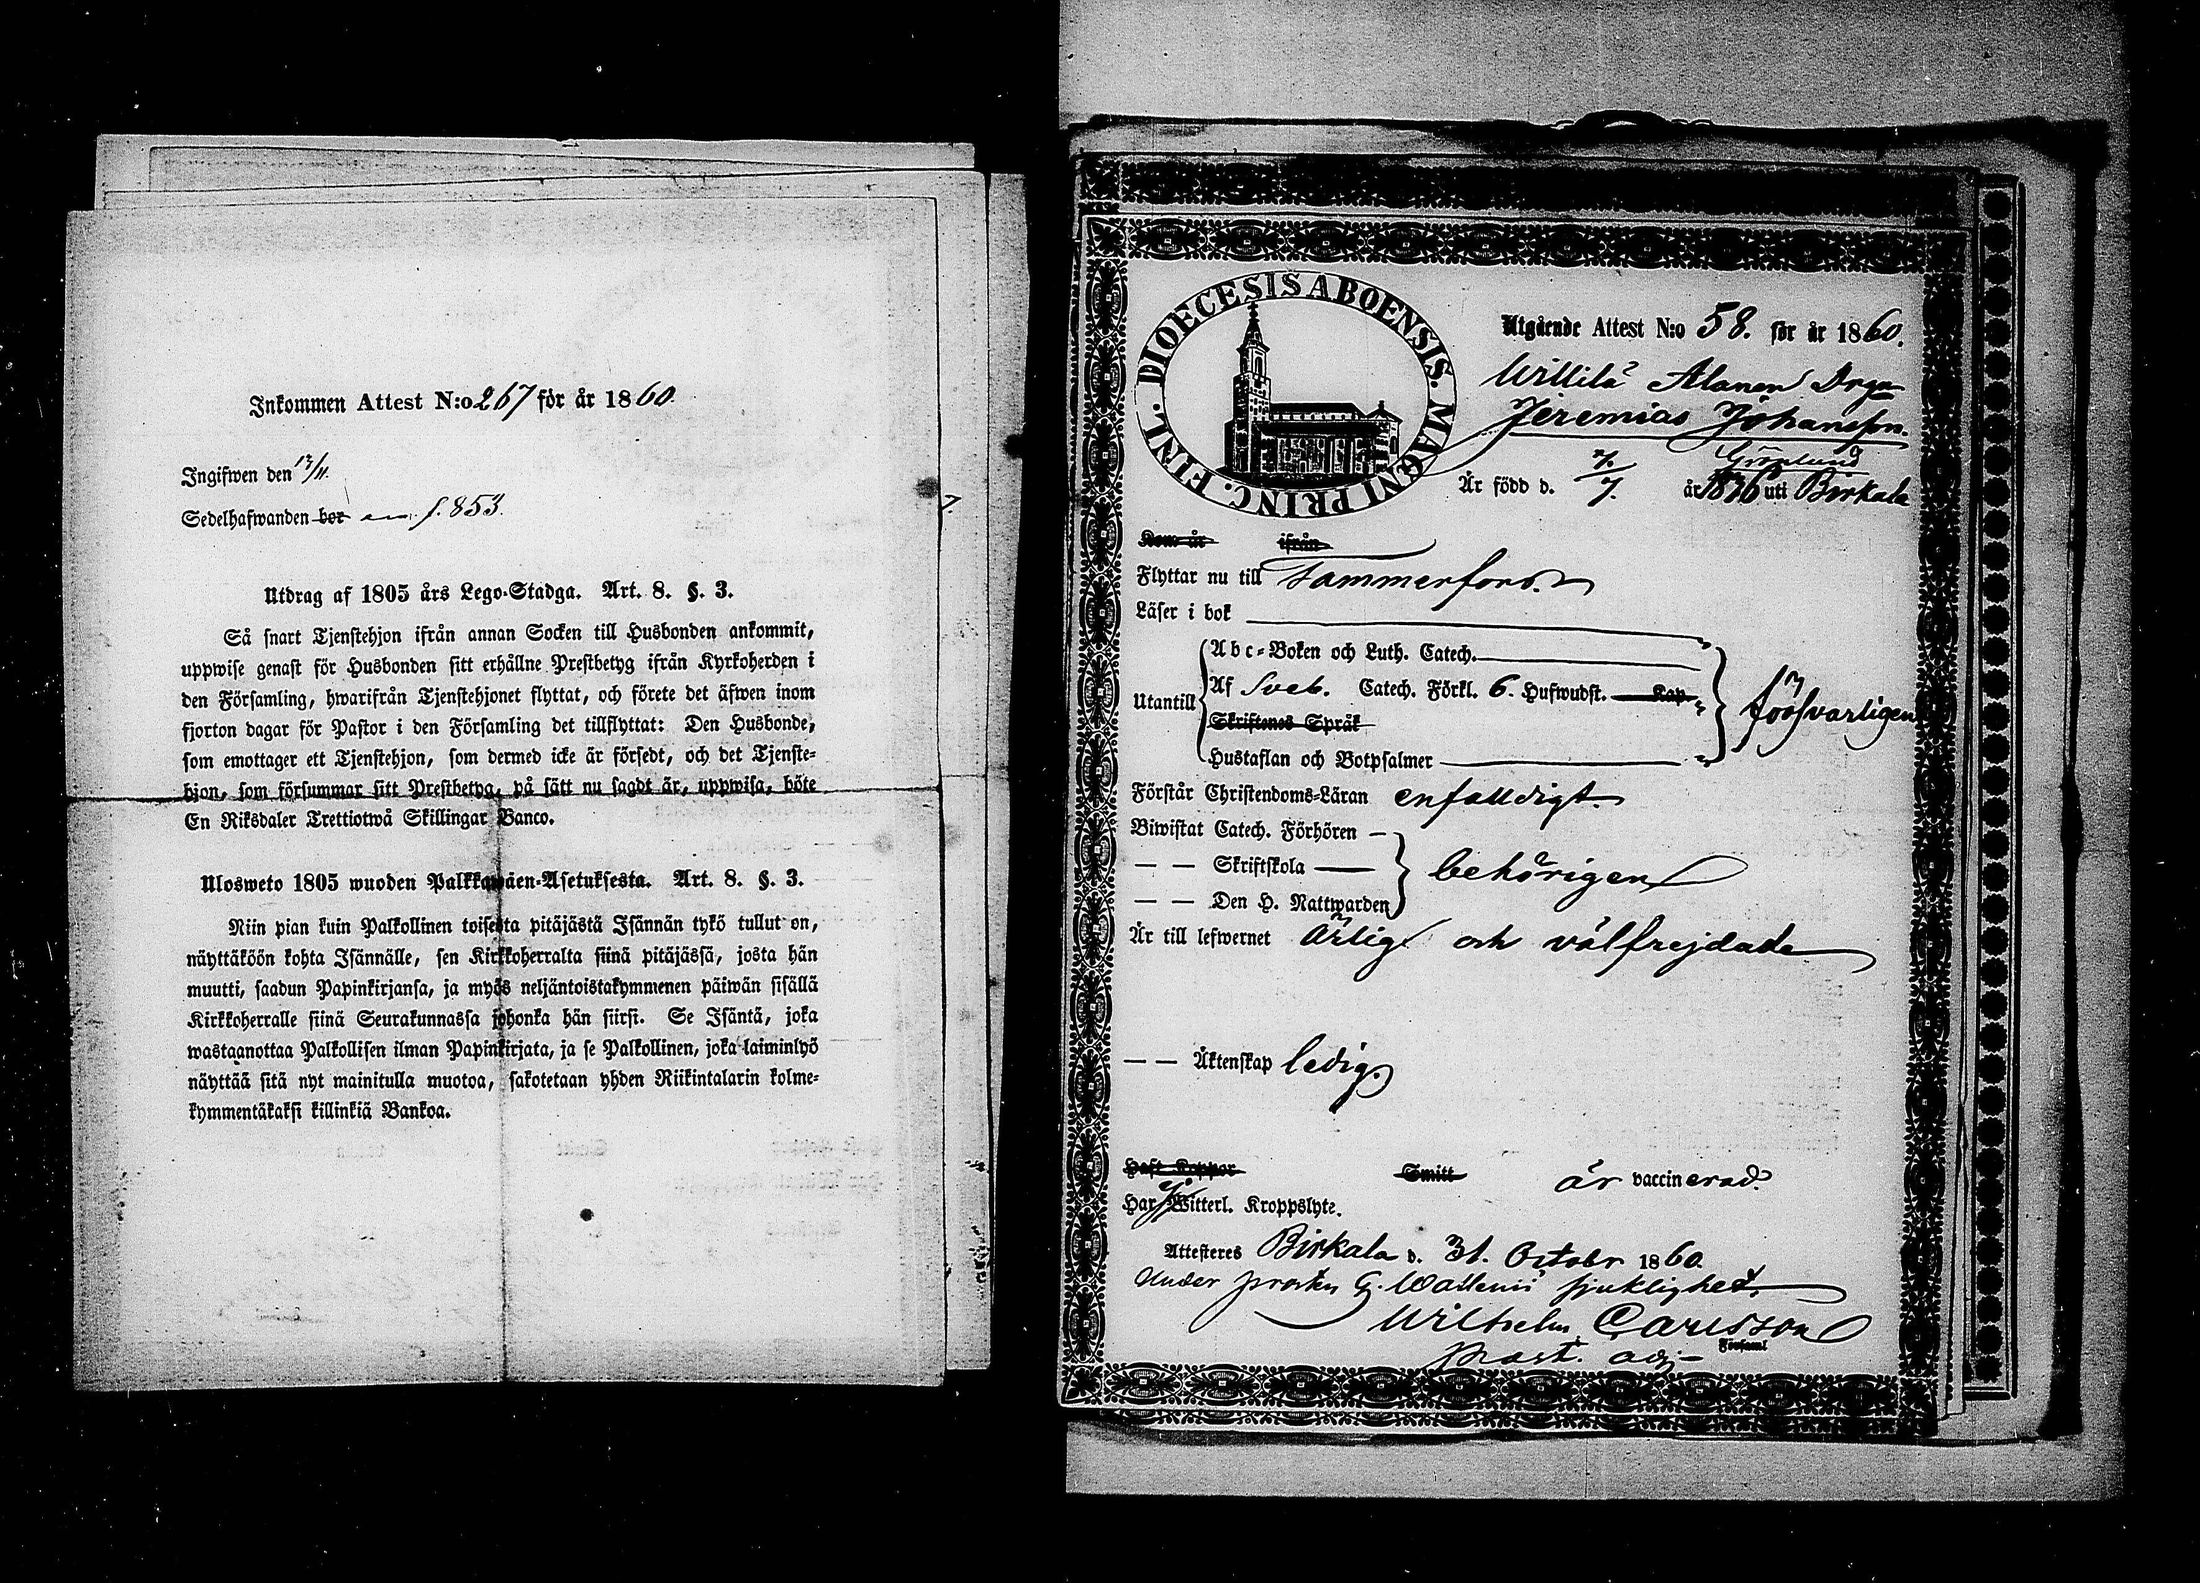 Inkommen Attest N:o 267 för år 1860
Ingifwen den 13/11.
Sedelhafwanden bor f. 853.
Utdrag af 1805 års Lego-Stadga. Art. 8. §. 3.
Så snart Tjenstehjon ifrån annan Socken till Husbonden ankommit,
uppwise genast för Husbonden sitt erhållne Prestbetyg ifrån Kyrkoherden i
den Församling, hwarifrån Tjenstehjonet flyttat, och förete det äfwen inom
fjorton dagar för Pastor i den Församling det tillflyttat: Den Husbonde,
som emottager ett Tjenstehjon, som dermed icke är försedt, och det Tjenste=
hjon, som försummar sitt Prestbetyg, på sätt nu sagdt är, uppwisa, böte
En Riksdaler Trettiotwå Skillingar Banco.
Ulosweto 1805 wuoden Palkkawäen-Asetuksesta. Art. 8. §. 3.
Niin pian kuin Palkollinen toisesta pitäjästä Isännän tykö tullut on,
näyttäköön kohta Isännälle, sen Kirkkoherralta siinä pitäjässä, josta hän
muutti, saadun Papinkirjansa, ja myös neljäntoistakymmenen päiwän sisällä
Kirkkoherralle siinä Seurakunnassa johonka hän siirsi. Se Isäntä, joka
wastaanottaa Palkollisen ilman Papinkirjata, ja se Palkollinen, joka laiminlyö
näyttää sitä nyt mainitulla muotoa, sakotetaan yhden Riikintalarin kolme=
kymmentäkaksi killinkiä Bankoa.
DIOECESIS ABOENSIS. MAGNI PRINC. FINL.
Utgående Attest N:o 58. för år 1860.
Willilä Alanen Drga
Jeremias Johansson
Grönlund
Är född d. 7/7. år 1836 uti Birkala
Kom år ifrån
Flyttar nu till Tammerfors.
Läser i bok
Abc=Boken och Luth. Catech.
Utantill Af Sveb. Catech. Förkl. 6. Hufwudst. Kap
Skriftenes Språk
försvarligen
Hustaflan och Botpsalmer
Förstår Christendoms=Läran enfalldigt.
Biwistat Catech. Förhören
— — Skriftskola — behörigen
— — Den H. Nattwarden
Är till lefwernet ärlig och välfrejdade
— — Äktenskap ledig.
Haft Koppor Smitt är vaccinerad.
Har ej Witterl. Kroppslyte.
Attesteres Birkala d. 31. October 1860.
Under prosten G. Wallenii sjuklighet.
Wilhelm Carlsson
Församl
past. adj